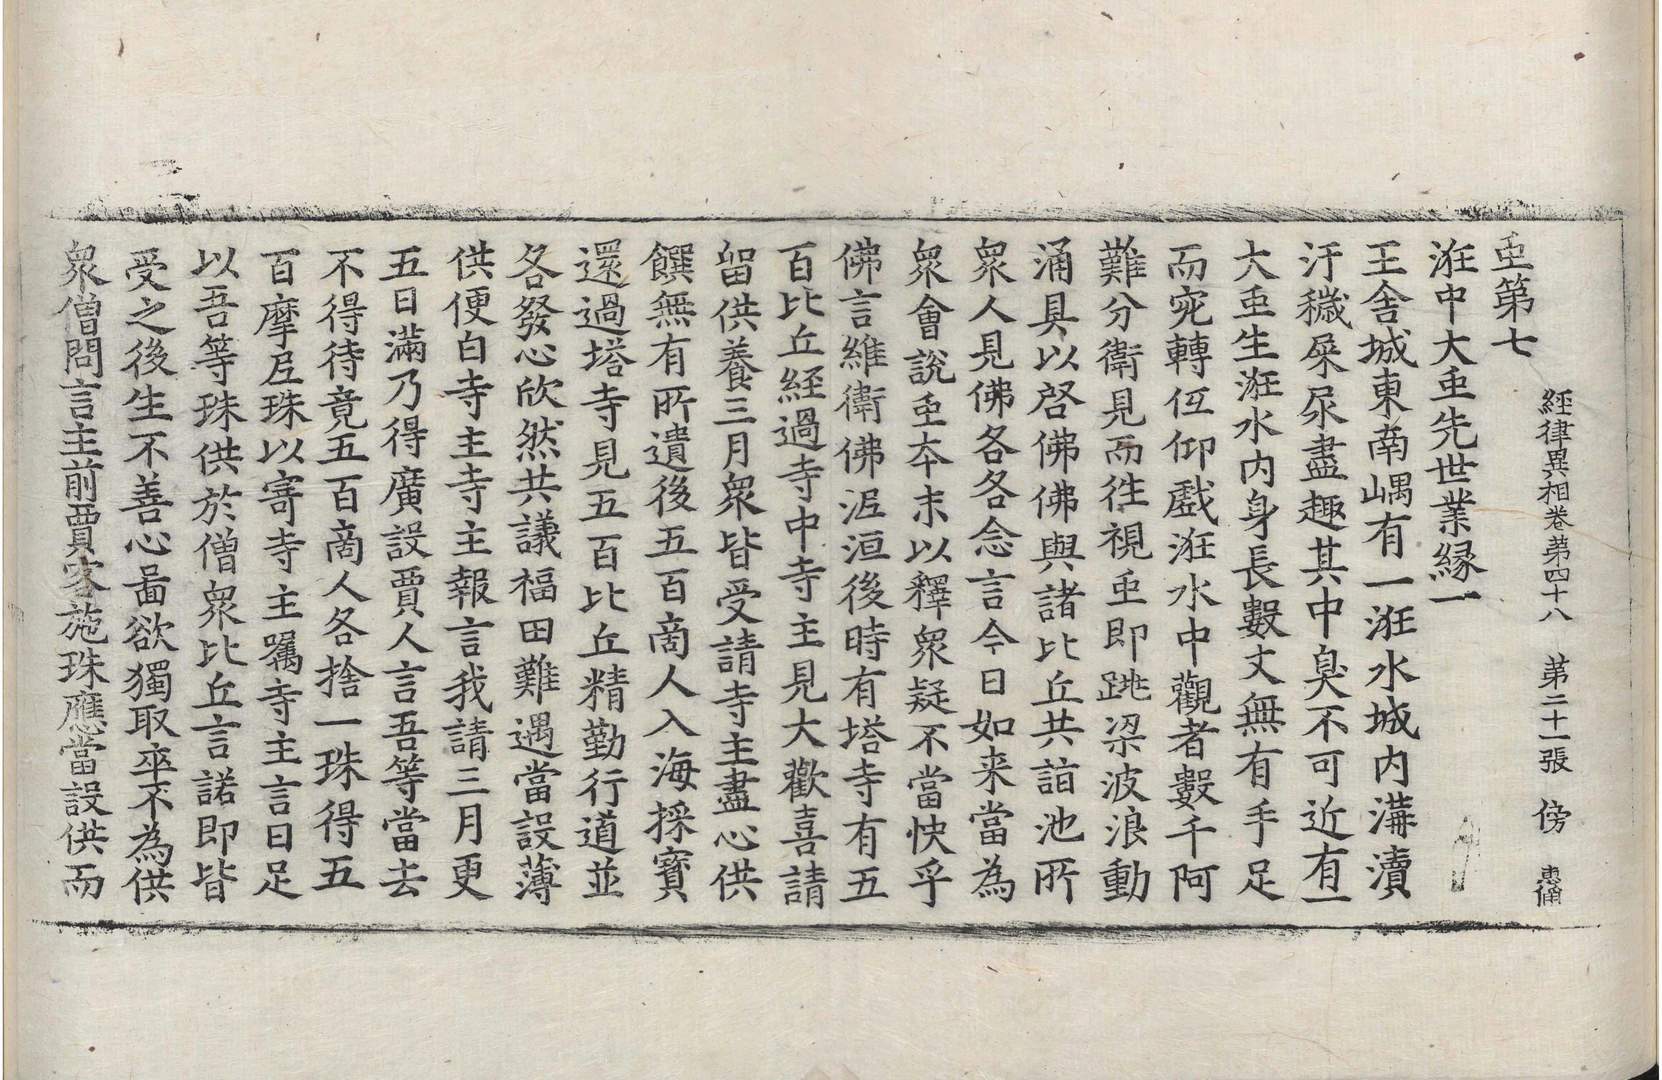 經律異相卷第四十八　第二十一張　傍　惠僃
䖝第七
汪中大䖝先世業緣一
王舍城東南嵎有一汪水城内溝瀆
汙穢屎尿盡趣其中臭不可近有一
大䖝生汪水内身長數丈無有手足
而宛轉伍仰戲汪水中觀者數千阿
難分衛見而徃視䖝即跳梁波浪動
涌具以啓佛佛與諸比丘共詣池所
衆人見佛各各念言今日如来當為
衆會說䖝夲末以釋衆疑不當快乎
佛言維衛佛泥洹後時有塔寺有五
百比丘経過寺中寺主見大歡喜請
留供養三月衆皆受請寺主盡心供
饌無有所遺後五百商人入海採寳
還過塔寺見五百比丘精勤行道並
各發心欣然共議福田難遇當設薄
供便白寺主寺主報言我請三月更
五日滿乃得廣設賈人言吾等當去
不得待竟五百商人各捨一珠得五
百摩尼珠以寄寺主囑寺主言日足
以吾等珠供於僧衆比丘言諾即皆
受之後生不善心啚欲獨取卒不為供
衆僧問言主前賈客施珠應當設供而